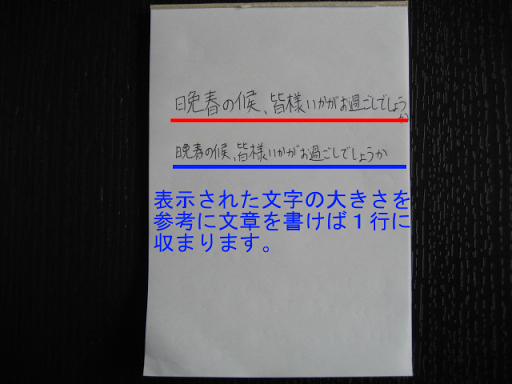 晩春の候、皆様いかがお過ごしでしょう
か
晩春の候、皆様いかがお過ごしでしょうか
表示された文字の大きさを
参考に文章を書けば１行に
収まります。